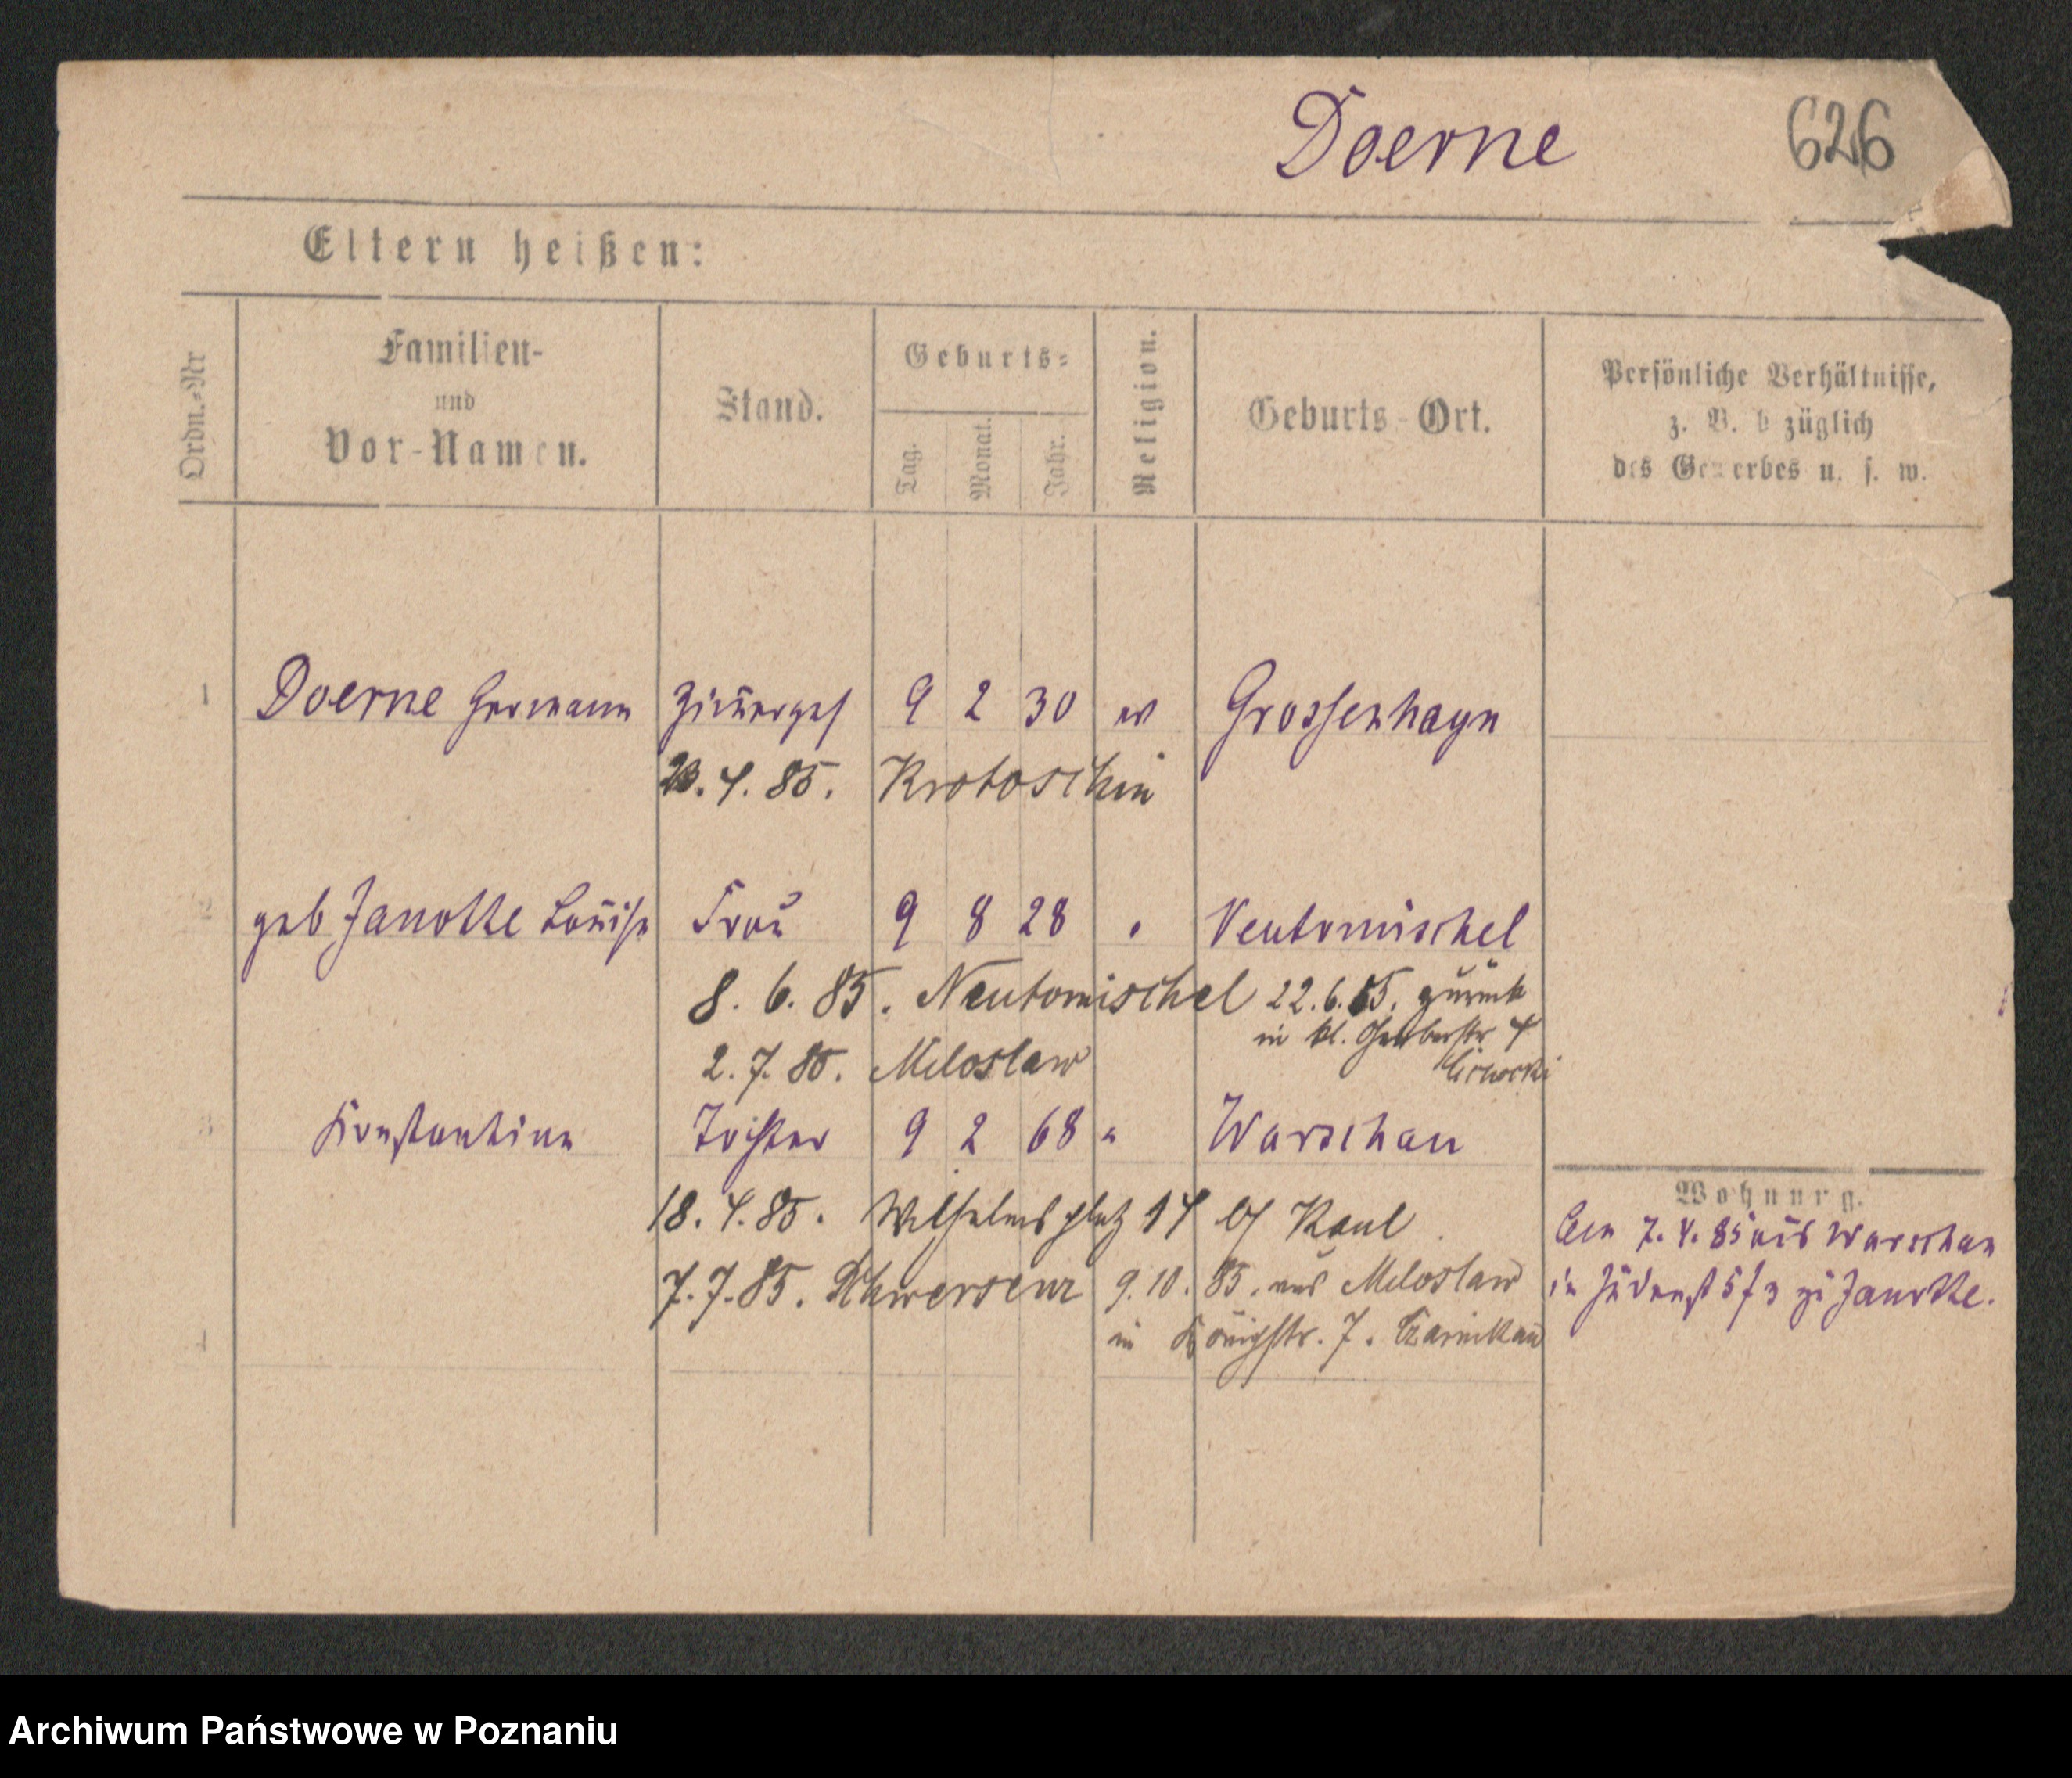 Doerne 626
Eltern heißen:
Ordn.-Nr
Familien-
und
Vor-Namen.
Stand.
Geburts-
Tag.
Monat.
Jahr.
Religion.
Geburts-Ort.
Persönliche Verhältnisse,
z. B. b züglich
des Gewerbes u. s. w.
1 Doerne Hermann Zimerges 9 2 30 ev Grossenhayn
23. 4. 85. Krotoschin
2 geb Janotte Louise Frau 9 8 28 " Neutomischel
8. 6. 85. Neutomischel 22. 6. 85. zurück
in kl. Gerberstr 4
2. 7. 85. Miloslaw
3 Konstantine Tochter 9 2 68 " Warschau
18. 4. 85. Wilhelmsplatz 14 b/ Kaul
7. 7. 85. Schwersenz 9. 10. 85. aus Miloslaw
in Königstr. 7. Czarnikau
4
Wohnung.
Am 7. 4. 85 aus Warschau
in Judenst 5/3 zu Janotte.
Archiwum Państwowe w Poznaniu